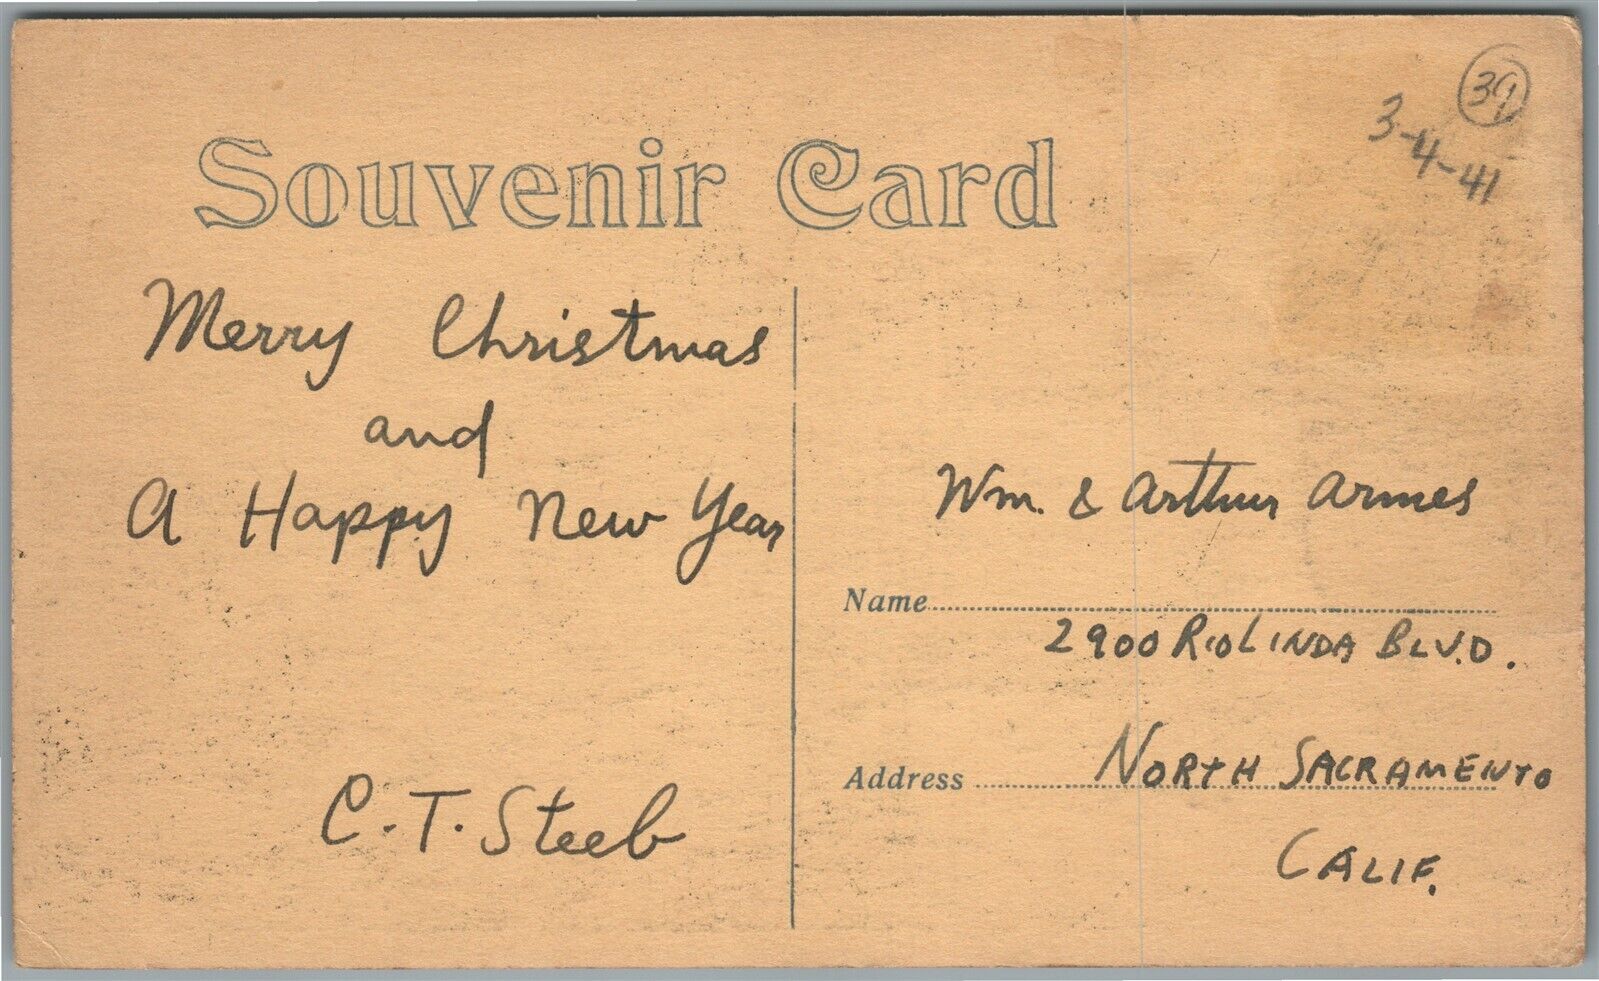 39
3-4-41
Souvenir Card
Merry Christmas
and
A Happy New Year
C. T. Steeb
Wm. & Arthur Armes
Name
2900 Rio Linda Blvd.
Address North Sacramento
Calif.